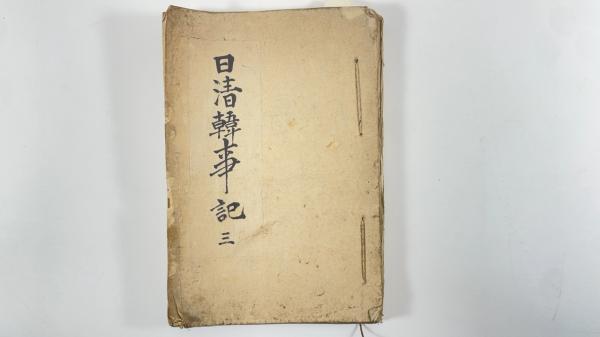 日清韓事記
三